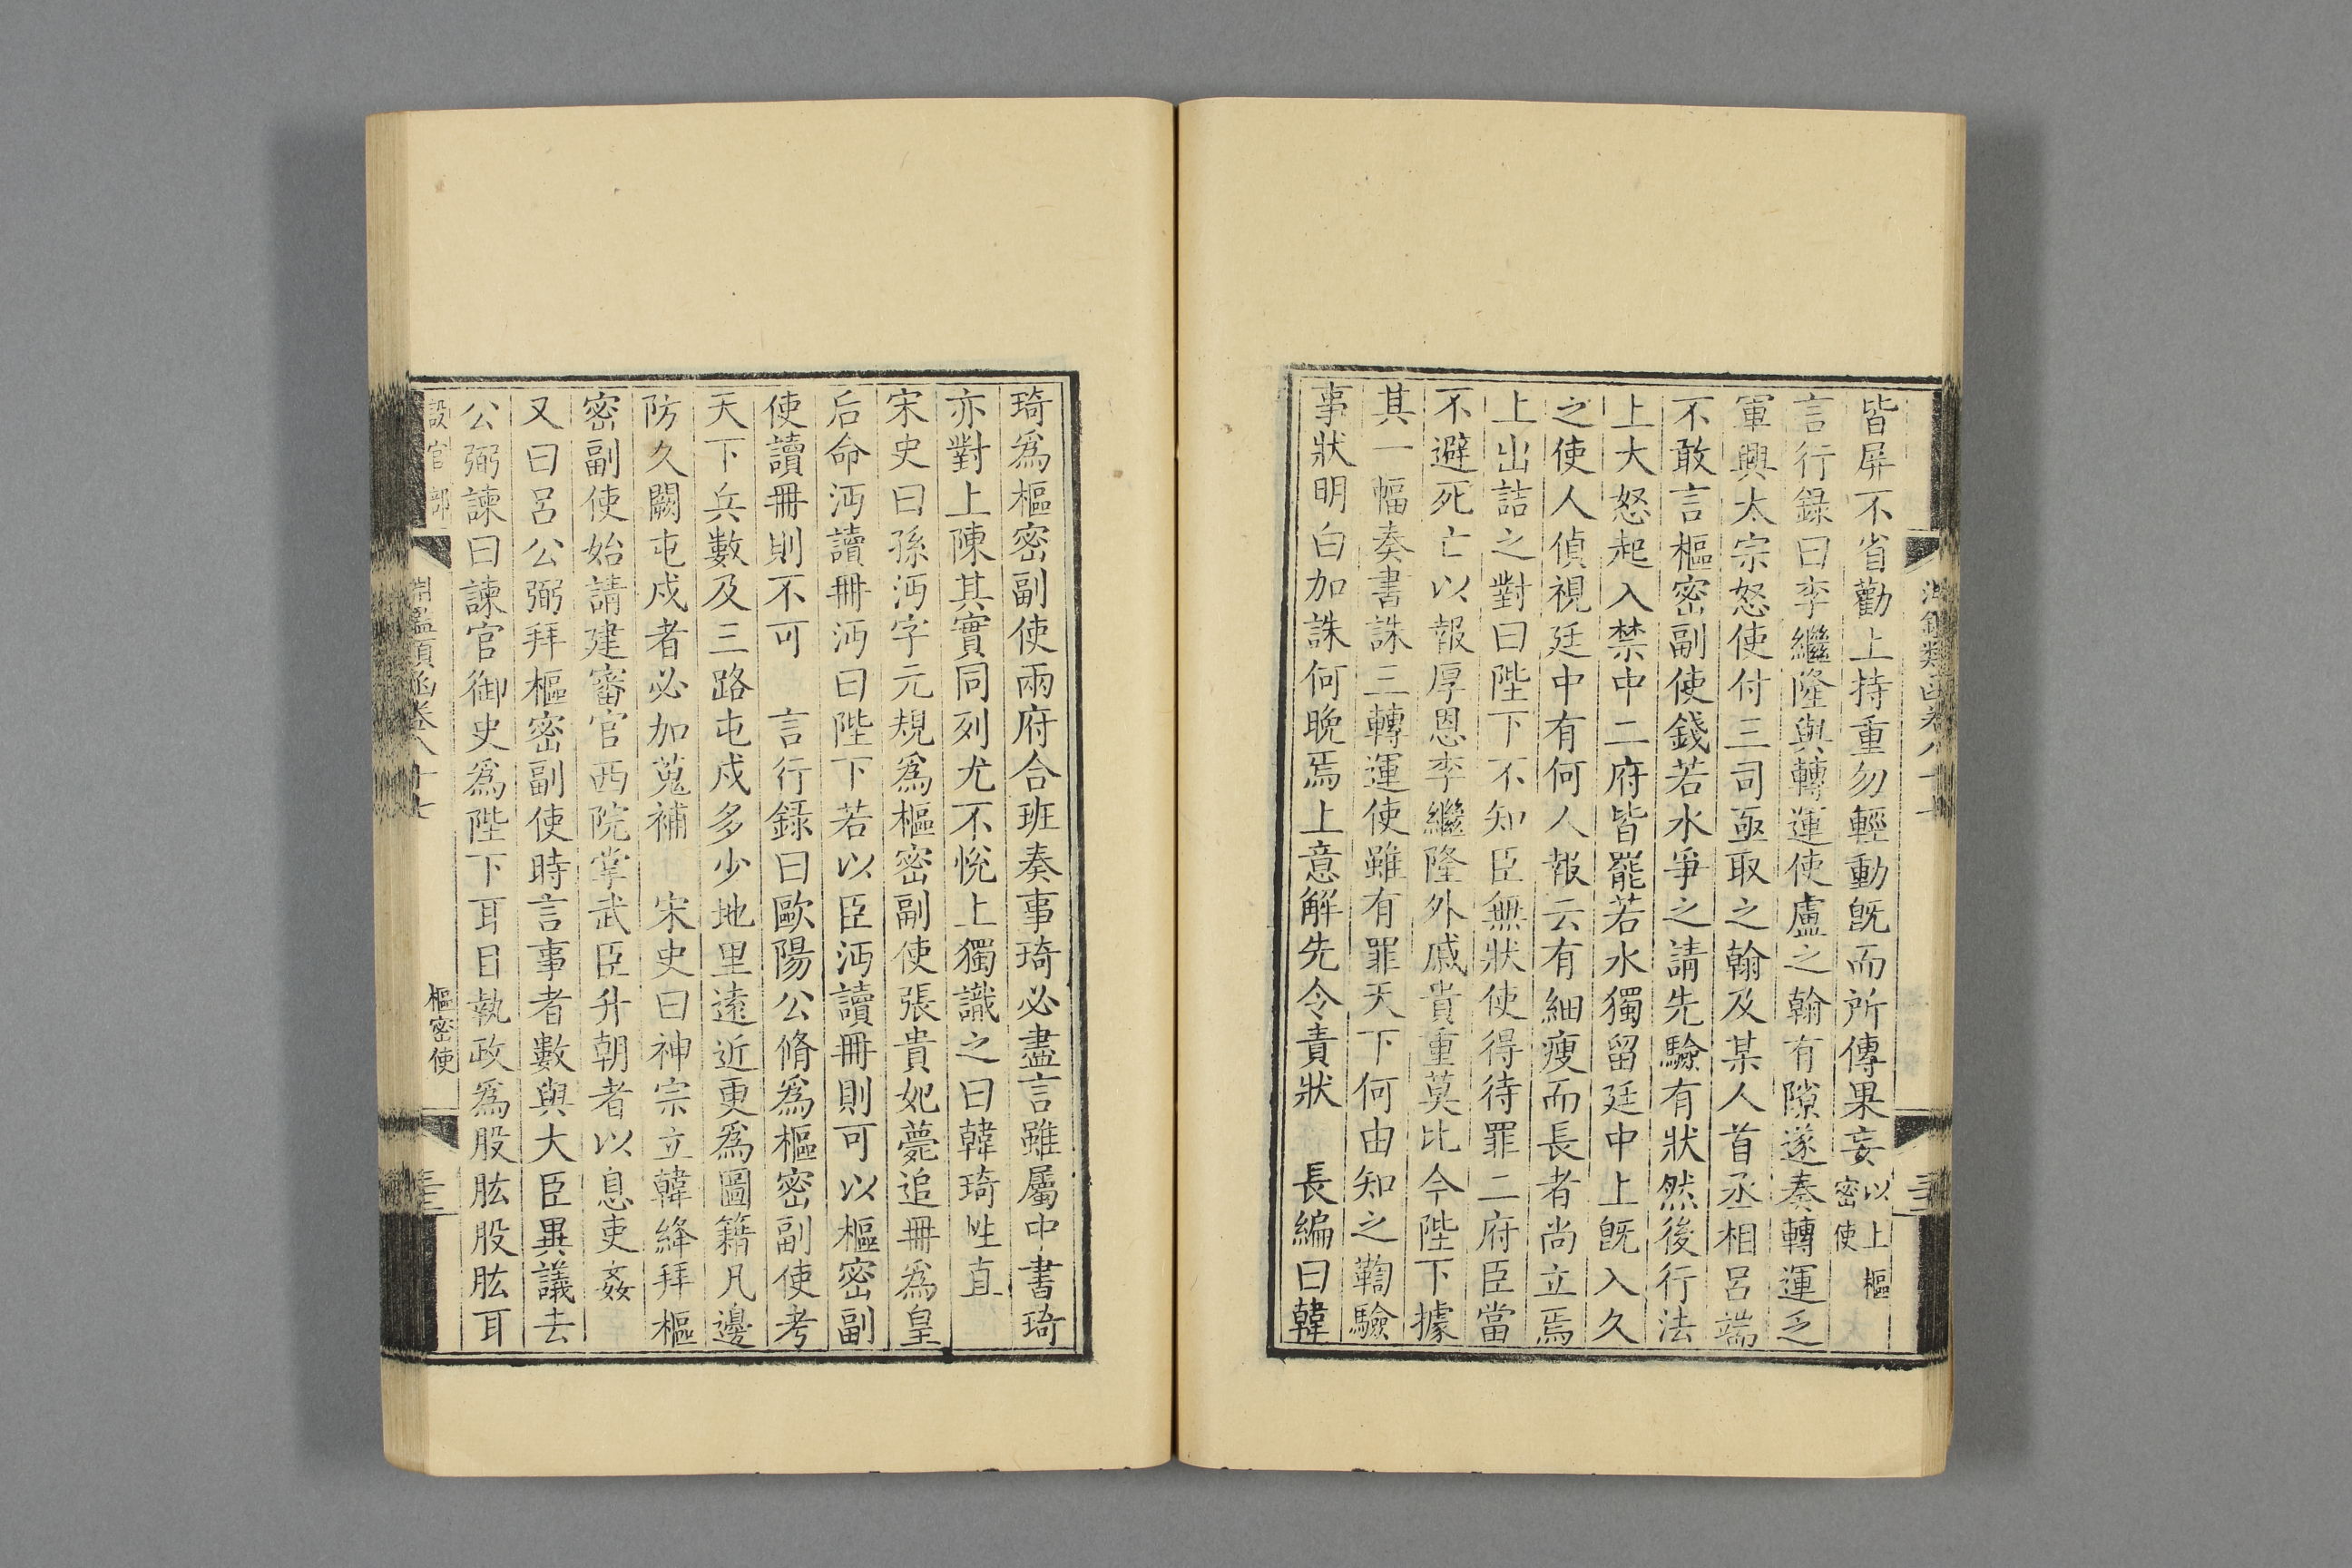 皆屏不省勸上持重勿輕動旣而所傳果妄以上樞密使
言行録曰李繼隆與轉運使盧之翰有隙遂奏轉運乏
軍興太宗怒使付三司亟取之翰及某人首丞相呂端
不敢言樞密副使錢若水爭之請先驗有狀然後行法
上大怒起入禁中二府皆罷若水獨留廷中上旣入久
之使人偵視廷中有何人報云有細瘦而長者尚立焉
上出詰之對曰陛下不知臣無狀使得待罪二府臣當
不避死亡以報厚恩李繼隆外戚貴重莫比今陛下據
其一幅奏書誅三轉運使雖有罪天下何由知之鞫驗
事狀明白加誅何晚焉上意解先令責狀　長編曰韓
琦爲樞密副使兩府合班奏事琦必盡言雖屬中書琦
亦對上陳其實同列尤不悅上獨識之曰韓琦性直
宋史曰孫沔字元規爲樞密副使張貴妃薨追冊爲皇
后命沔讀冊沔曰陛下若以臣沔讀冊則可以樞密副
使讀冊則不可　言行録曰歐陽公脩爲樞密副使考
天下兵數及三路屯戍多少地里遠近更爲圖籍凡邊
防久闕屯戍者必加蒐補　宋史曰神宗立韓絳拜樞
密副使始請建審官西院掌武臣升朝者以息吏姦
又曰呂公弼拜樞密副使時言事者數與大臣異議去
公弼諫曰諫官御史爲陛下耳目執政爲股肱股肱耳
設官部　淵鑑類函卷八十七　樞密使